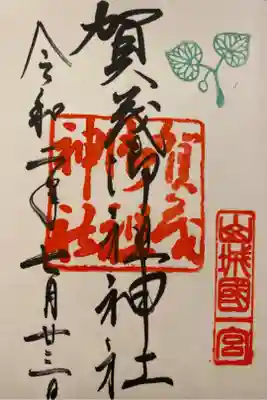 山城國一宮
賀茂御祖神社
賀茂
御祖
神社
令和二年七月廿三日